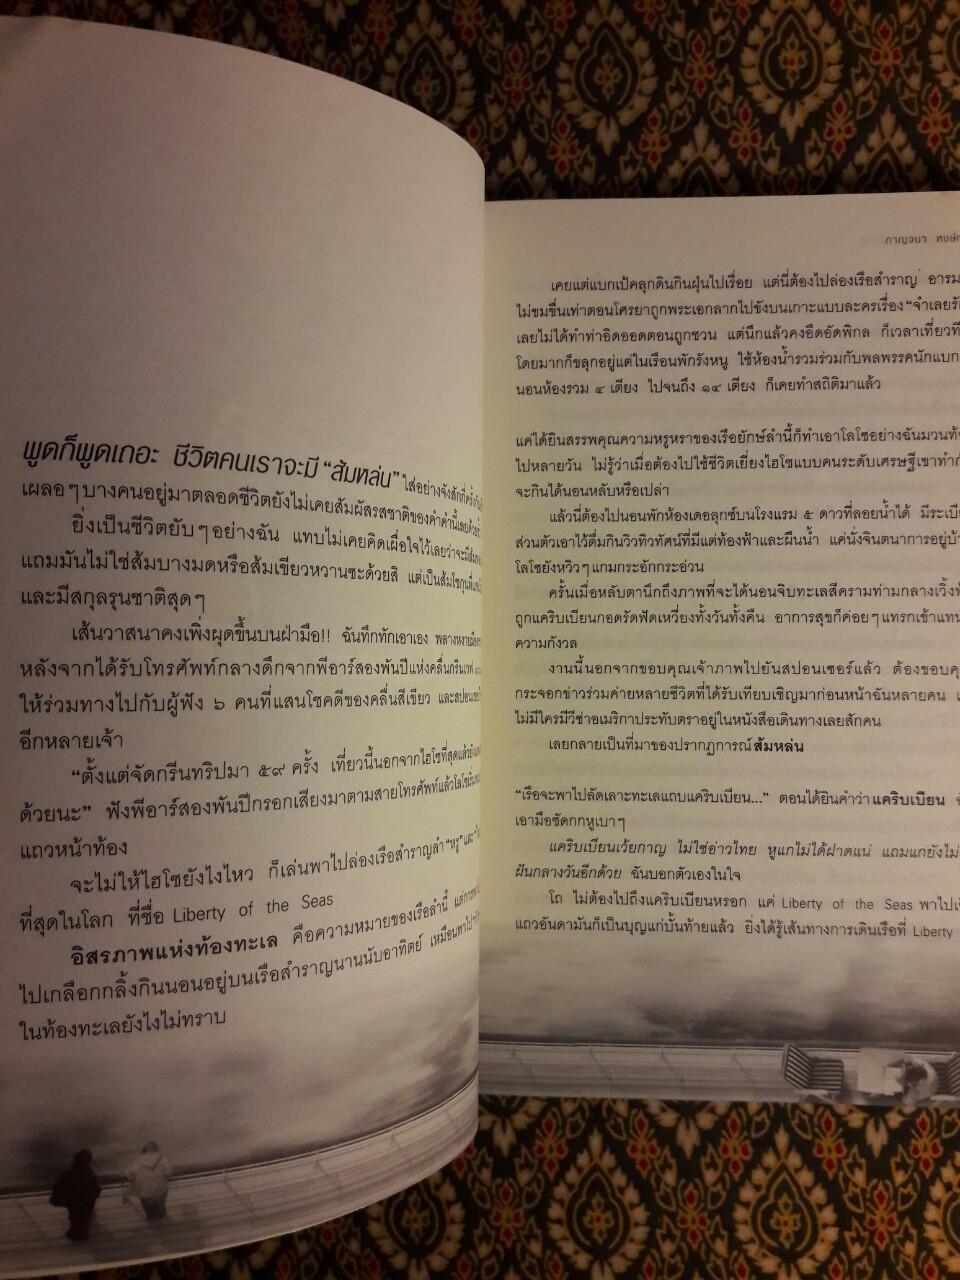 พูดก็พูดเถอะ ชีวิตคนเราจะมี “ส้มหล่น” ใส่อย่างจังสักกี่ครั้ง
เผลอๆบางคนอยู่มาตลอดชีวิตยังไม่เคยสัมผัสรสชาติของคำคำนี้เลยด้วยซ้ำ
ยิ่งเป็นชีวิตยับๆอย่างฉัน แทบไม่เคยคิดเผื่อใจไว้เลยว่าจะมีส้ม
แถมมันไม่ใช่ส้มบางมดหรือส้มเขียวหวานซะด้วยสิ แต่เป็นส้มโชกุน
และมีสกุลรุนชาติสุดๆ
เส้นวาสนาคงเพิ่งผุดขึ้นบนฝ่ามือ!! ฉันทึกทักเอาเอง พลางหงายมือ
หลังจากได้รับโทรศัพท์กลางดึกจากพีอาร์สองพันปีแห่งคลื่นกรีนเวฟ
ให้ร่วมทางไปกับผู้ฟัง ๖ คนที่แสนโชคดีของคลื่นสีเขียว และสปอนเซอร์
อีกหลายเจ้า
“ตั้งแต่จัดกรีนทริปมา ๕๙ ครั้ง เที่ยวนี้นอกจากไฮโซที่สุดแล้วยัง
ด้วยนะ” ฟังพีอาร์สองพันปีกรอกเสียงมาตามสายโทรศัพท์แล้วโลโซ
แถวหน้าท้อง
จะไม่ให้ไฮโซยังไงไหว ก็เล่นพาไปล่องเรือสำราญลำ “หรู” และ
ที่สุดในโลก ที่ชื่อ Liberty of the Seas
อิสรภาพแห่งท้องทะเล คือความหมายของเรือลำนี้ แต่การ
ไปเกลือกกลิ้งกินนอนอยู่บนเรือสำราญนานนับอาทิตย์ เหมือนพาไป
ในท้องทะเลยังไงไม่ทราบ
กาญจนา หงษ์
เคยแต่แบกเป้คลุกดินกินฝุ่นไปเรื่อย แต่นี่ต้องไปล่องเรือสำราญ อารม
ไม่ขมขื่นเท่าตอนโศรยาถูกพระเอกลากไปขังบนเกาะแบบละครเรื่อง “จำเลยรัก
เลยไม่ได้ทำท่าอิดออดตอนถูกชวน แต่นึกแล้วคงอึดอัดพิกล ก็เวลาเที่ยวที
โดยมากก็ขลุกอยู่แต่ในเรือนพักรังหนู ใช้ห้องน้ำรวมร่วมกับพลพรรคนักแบก
นอนห้องรวม ๔ เตียง ไปจนถึง ๑๔ เตียง ก็เคยทำสถิติมาแล้ว
แค่ได้ยินสรรพคุณความหรูหราของเรือยักษ์ลำนี้ก็ทำเอาโลโซอย่างฉันมวนท้อง
ไปหลายวัน ไม่รู้ว่าเมื่อต้องไปใช้ชีวิตเยี่ยงไฮโซแบบคนระดับเศรษฐีเขาทำกัน
จะกินได้นอนหลับหรือเปล่า
แล้วนี่ต้องไปนอนพักห้องเดอลุกซ์บนโรงแรม ๕ ดาวที่ลอยน้ำได้ มีระเบียง
ส่วนตัวเอาไว้ดื่มกินวิวทิวทัศน์ที่มีแต่ท้องฟ้าและผืนน้ำ แค่นั่งจินตนาการอยู่บ้าน
โลโซยังหวิวๆแกมกระอักกระอ่วน
ครั้นเมื่อหลับตานึกถึงภาพที่จะได้นอนจิบทะเลสีครามท่ามกลางเวิ้งฟ้า
ถูกแคริบเบียนกอดรัดฟัดเหวี่ยงทั้งวันทั้งคืน อาการสุขก็ค่อยๆแทรกเข้าแทน
ความกังวล
งานนี้นอกจากขอบคุณเจ้าภาพไปยันสปอนเซอร์แล้ว ต้องขอบคุณ
กระจอกข่าวร่วมค่ายหลายชีวิตที่ได้รับเทียบเชิญมาก่อนหน้าฉันหลายคน
ไม่มีใครมีวีซ่าอเมริกาประทับตราอยู่ในหนังสือเดินทางเลยสักคน
เลยกลายเป็นที่มาของปรากฏการณ์ส้มหล่น
“เรือจะพาไปลัดเลาะทะเลแถบแคริบเบียน...” ตอนได้ยินคำว่าแคริบเบียน
เอามือซัดกกหูเบาๆ
แคริบเบียนเว้ยกาญ ไม่ใช่อ่าวไทย หูแกไม่ได้ฝาดแน่ แถมแกยังไม่
ฝันกลางวันอีกด้วย ฉันบอกตัวเองในใจ
โถ ไม่ต้องไปถึงแคริบเบียนหรอก แค่ Liberty of the Seas พาไป
แถวอันดามันก็เป็นบุญแก่บั้นท้ายแล้ว ยิ่งได้รู้เส้นทางการเดินเรือที่ Liberty